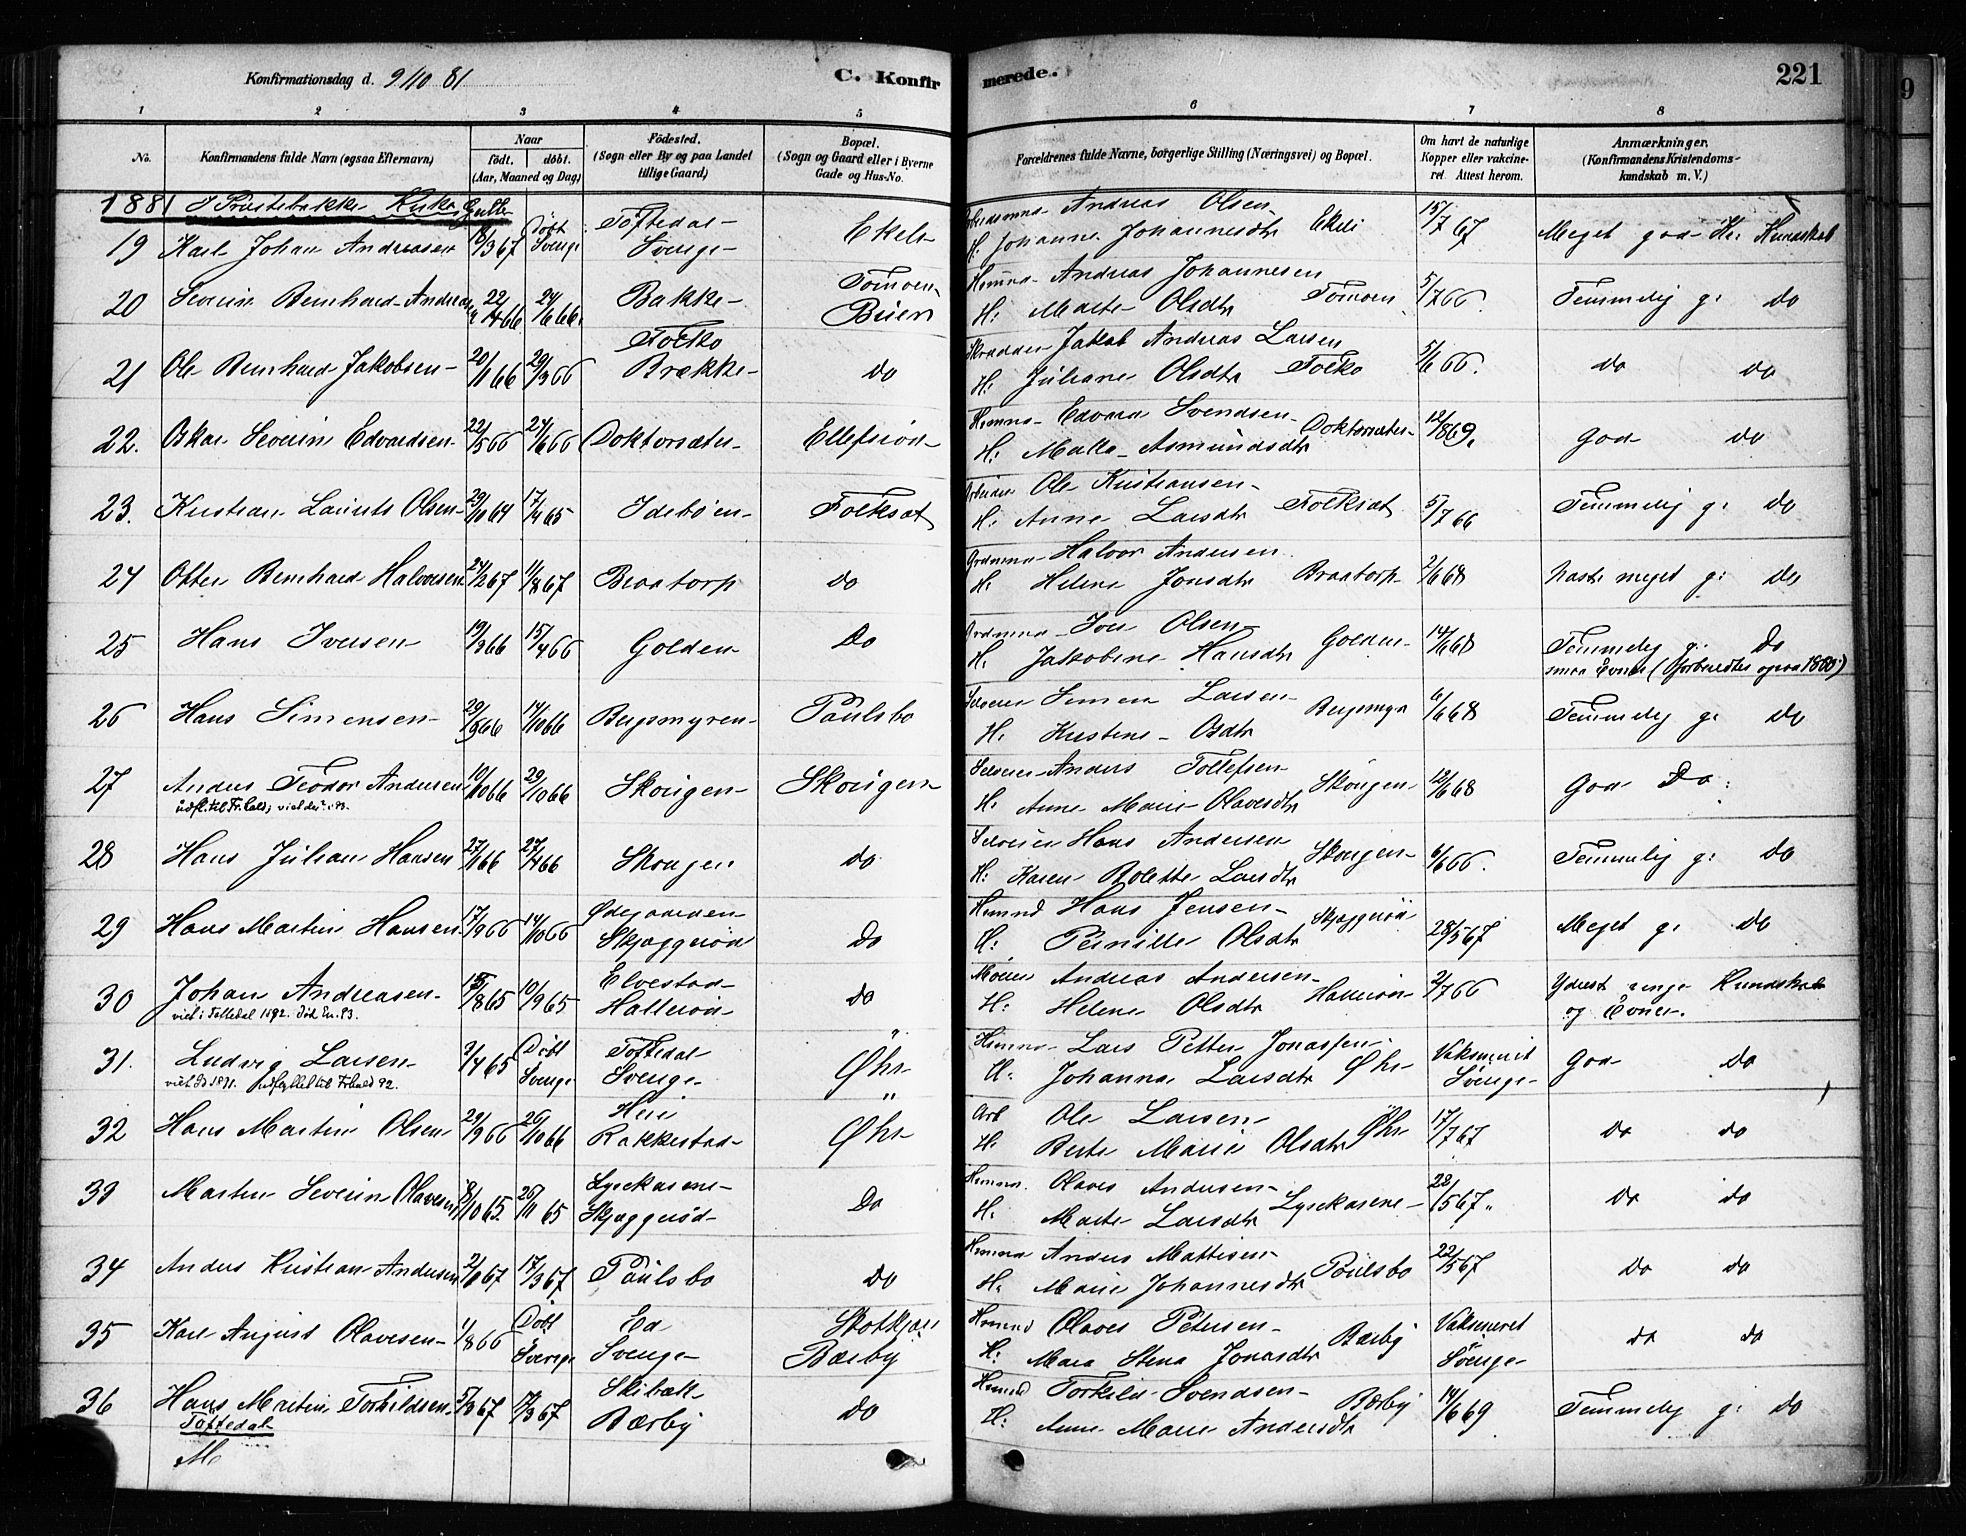 Konfirmationsdag d. 9/10 81
C. Konfirmerede.
221
1 2 3 4 5 6 7 8
No.
Konfirmandens fulde Navn (ogsaa Efternavn)
Naar
født. døbt.
(Aar, Maaned og Dag)
Fødested.
(Sogn eller By og paa Landet
tillige Gaard)
Bopæl.
(Sogn og Gaard eller i Byerne
Gade og Hus-No.
Forældrenes fulde Navne, borgerlige Stilling (Næringsvei) og Bopæl.
Om havt de naturlige
Kopper eller vakcine-
ret. Attest herom.
Anmærkninger.
(Konfirmandens Kristendoms-
kundskab m. V.)
1881 I Prestebakke Kirke Gutter
19 Karl Johan Andreasen /3 67 Døbt Sverige Toftedal Sverige
Andreas Olsen
H: Johanne Johannesdtr 15/7 67 Meget god Kr. Kundskab
20 Severin Bernhard Andreas 22/4 66 24/6 66 Bakke Tomoen Buer
Andreas Johannesen
H: Marte Olsdtr Tomoen 5/7 66 Temmelig g. do
21 Ole Bernhard Jakobsen 20/1 66 29/3 66 Brække do
Jakob Andreas Larsen
H: Juliane Olsdtr 5/6 66. do do
22. Oskar Severin Edvardsen 22/5 66 24/6 66 Doktorsæter Ellefsrød
Edvard Svendsen Doktorsæter
H: Malla Asmundsdtr 12/8 69. God do
23. Kristian Laurits Olsen 29/10 64 17/4 65 Idebøen Folksæt
Ole Kristiansen Folksæt
H: Anne Larsdtr 5/7 66 Temmelig g: do
24 Otter Bernhard Halvorsen 24/2 67 11/8 67 Braatorp do
Halvor Andersen
H: Helene Jonsdtr Braatorp 2/6 68 næste meget g: do
25 Hans Iversen 19/3 66 15/4 66 Golden Do
Iver Olsen Golden
H. Jakobine Hansdtr 14/6 68 Temmelig g: do
smaa Evner (Forberedtes ogsaa 1880)
26 Hans Simensen 29/5 66 14/10 66 Bergsmyren Paulsbo
Simen Larsen Bergsmyr
H. Kristine Osdtr 6/6 68 Temmelig g: do
27 Anders Teodor Andersen 10/10 66 29/10 66 Skougen Skougen
udfl. til Fr.hald,
Selveier Anders Tollefsen Skougen
H: Anne Marie Olavesdtr 12/6 68 God Do:
28 Hans Julian Hansen 27/1 66 27/4 66 Skougen do
Selveier Hans Andersen Skougen
H: Karen Bolette Larsdtr 6/6 66. Temmelig g: do
29 Hans Martin Hansen 17/9 66 14/10 66 Ødegaarden Skjæggerød Do
Hans Jensen Skjæggerød
H: Pernille Olsdtr 28/5 67 Meget g: do
30 Johan Andreasen /8 65 10/9 65 Elvestad Hallerød do
viet i Tostedal 1892.
Andreas Andersen
H: Helene Olsdtr Hallerød 2/7 66 Yderst ringe Kundskab
og Evner.
31. Ludvig Larsen 3/4 65 Døbt Sverige Toftedal Sverige " Øhr "
udflyttet til Frhald 92.
Lars Petter Jonassen
H: Johanna Larsdtr Øhr Vaksineret Sverige God do
32 Hans Martin Olsen 29/9 66 26/10 66 Heie Rakkestad Øhr
Arb Ole Larsen
H: Berte Marie Olsdtr Øhr 17/7 67 do do
33 Martin Severin Olavesen 8/10 65. 26/11 65 Lysekasene Skjæggerød Do
Olaves Andersen
H: Marte Larsdtr Lysekasene 22/5 67 do do
34 Anders Kristian Andersen 2/1 67 17/3 67 Paulsbo do
Anders Mattisen Paulsbo
H. Marie Johannesdtr 22/5 67 do do
35 Karl August Olavesen 1/8 66 Døbt Sverige Ed Sverige Bærby
Olaves Petersen Bærby
H: Maria Stena Jonasdtr Vaksineret Sverige do do
36 Hans Martin Torkildsen 5/3 67 /3 67 Skibæk Bærby do
Torkild Svendsen Bærby
H: Anne Marie Andersdtr 14/6 69 Temmelig g: do
Toftedal
M